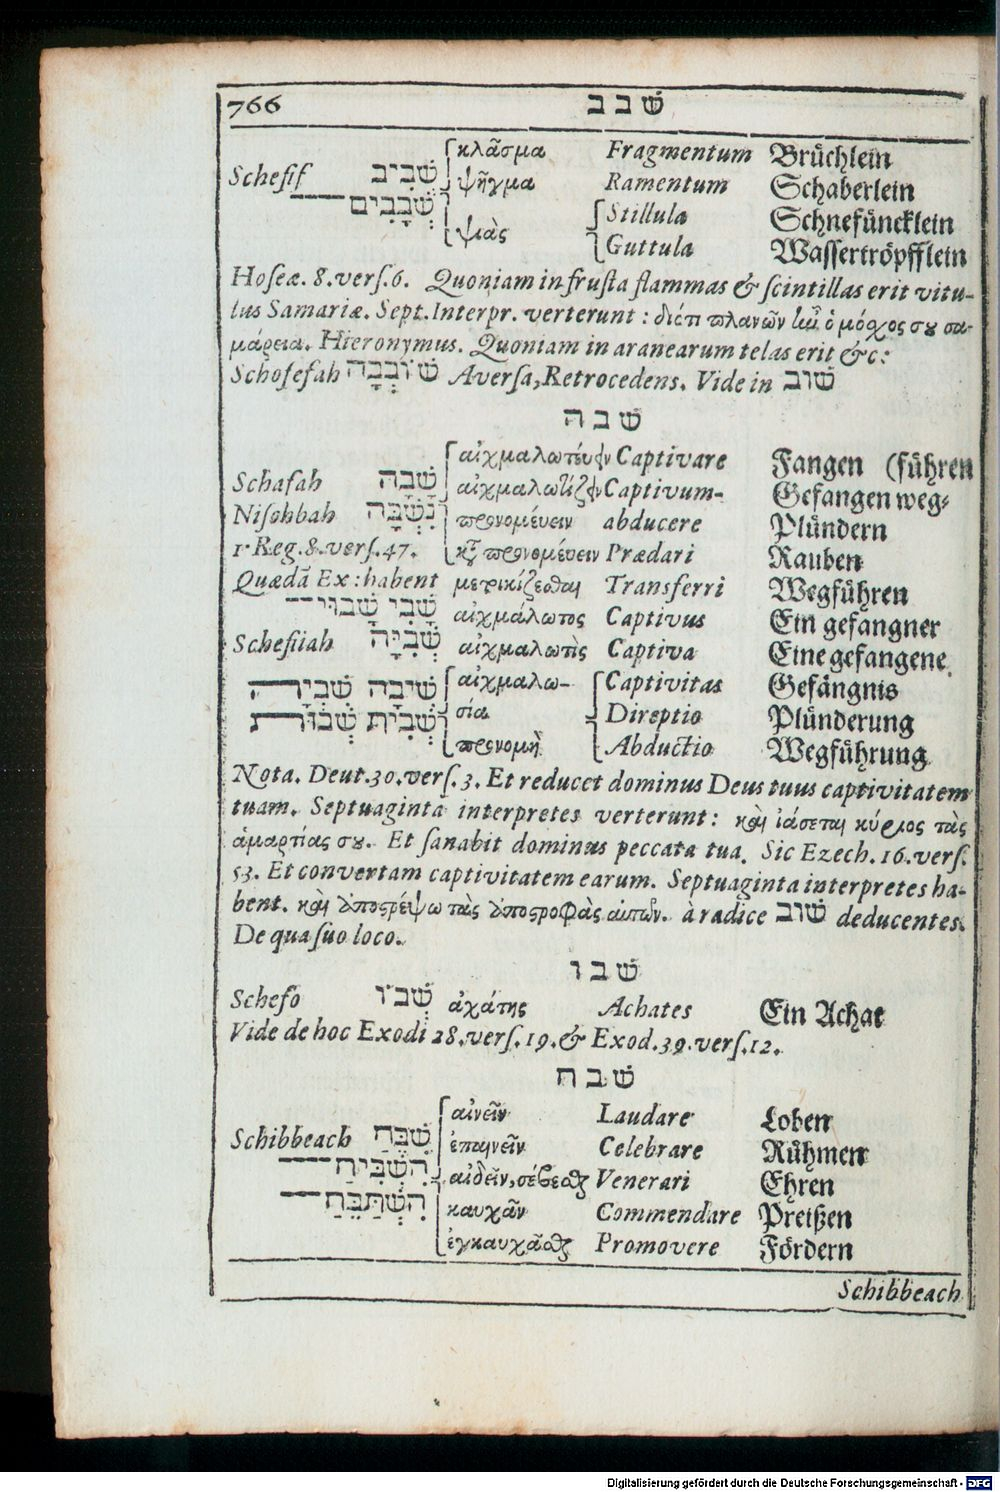 766 שבב
κλᾶσμα Fragmentum Brüchlein
Schefif שָׁבִיב ψῆγμα Ramentum Schaberlein
שְׁבָבִים Stillula Schnefüncklein
ψιὰς Guttula Wassertröpfflein
Hoſeæ. 8. verſ. 6. Quoniam in fruſta flammas & ſcintillas erit vitu-
lus Samariæ. Sept. Interpr. verterunt: διότι πλανῶν ἦν ὁ μόσχος σου σα-
μάρεια. Hieronymus. Quoniam in aranearum telas erit &c:
Schofefah שׁוֹבְבָה Averſa, Retrocedens. Vide in שׁוּב
שבה
αἰχμαλωτεύειν Captivare Fangen (führen
Schafah שָׁבָה αἰχμαλωτίζειν Captivum- Gefangen weg-
Niſchbah נִשְׁבָּה προνομεύειν abducere Plündern
1. Reg. 8. verſ. 47. καταπρονομεύειν Prædari Rauben
Quædã Ex: habent μετοικίζεσθαι Transferri Wegführen
שְׁבִי שָׁבוּי αἰχμάλωτος Captivus Ein gefangner
Schefiiah שְׁבִיָּה αἰχμαλωτὶς Captiva Eine gefangene.
שִׁיבָה שִׁבְיָה αἰχμαλω- Captivitas Gefängnis
שְׁבִית שְׁבוּת σία Direptio Plünderung
προνομὴ Abductio Wegführung
Nota. Deut. 30. verſ. 3. Et reducet dominus Deus tuus captivitatem
tuam. Septuaginta interpretes verterunt: καὶ ἰάσεται κύριος τὰς
ἁμαρτίας σου. Et ſanabit dominus peccata tua. Sic Ezech. 16. verſ.
53. Et convertam captivitatem earum. Septuaginta interpretes ha-
bent. καὶ ἀποστρέψω τὰς ἀποστροφὰς αὐτῶν. à radice שׁוּב deducentes.
De qua ſuo loco.
שבו
Schefô שְׁבוֹ ἀχάτης Achates Ein Achat
Vide de hoc Exodi 28. verſ. 19. & Exod. 39. verſ. 12.
שבח
αἰνεῖν Laudare Loben
Schibbeach שִׁבֵּחַ ἐπαινεῖν Celebrare Rühmen
הִשְׁבִּיחַ αἰδεῖν, σέβεσθαι Venerari Ehren
הִשְׁתַּבֵּחַ καυχᾶν Commendare Preißen
ἐγκαυχᾶσθαι Promovere Fördern
Schibbeach
Digitalisierung gefördert durch die Deutsche Forschungsgemeinschaft - DFG